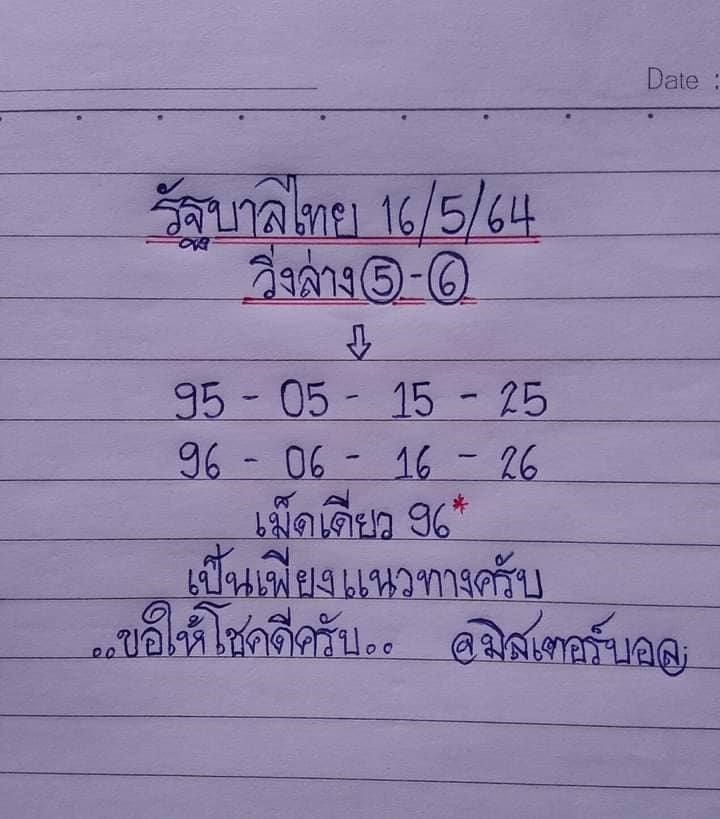 Date :
รัฐบาลไทย 16/5/64
วิ่งล่าง 5 - 6
95 - 05 - 15 - 25
96 - 06 - 16 - 26
เม็ดเดียว 96*
เป็นเพียงแนวทางครับ
..ขอให้โชคดีครับ.. @มิสเตอร์บอล